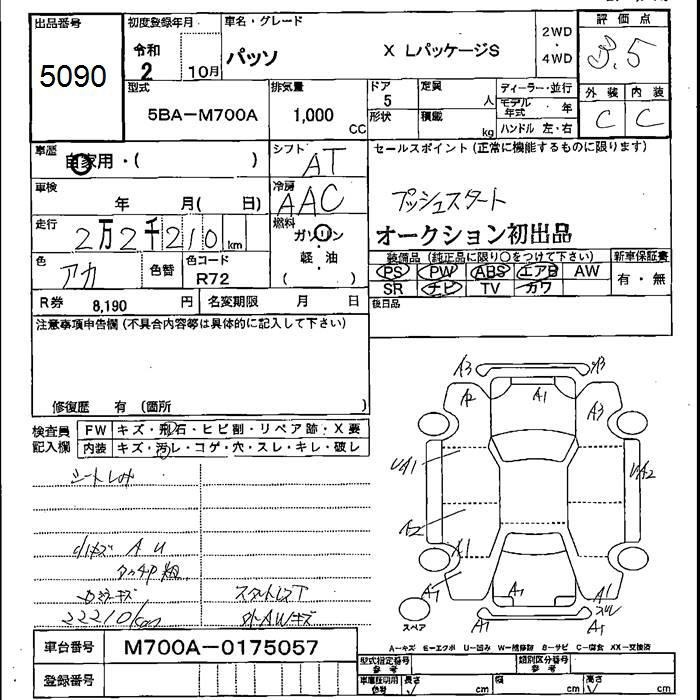 出品番号
5090
初度登録年月
令和
2
10月
車名・グレード
パッソ
X LパッケージS
2WD
・
4WD
評価点
3.5
外装 内装
C C
型式
5BA-M700A
排気量
1,000
CC
ドア
5
形状
定員
人
積載
kg
ディーラー・並行
モデル年式
年
ハンドル 左・右
車歴
自家用・( )
シフト
AT
車検
年 月( 日)
冷房
AAC
走行
2万2千210
km
燃料
ガソリン
・
軽・油
( )
色
アカ
色替
色コード
R72
R券 8,190 円
名変期限 月 日
セールスポイント(正常に機能するものに限ります)
プッシュスタート
オークション初出品
装備品(純正品に限り○をつけて下さい)
PS PW ABS エアB AW
SR ナビ TV カワ
新車保証書
有・無
後日品
注意事項申告欄(不具合内容等は具体的に記入して下さい)
修復歴 有 (箇所 )
検査員
記入欄
FW キズ・飛石・ヒビ割・リペア跡・X要
内装 キズ・汚レ・コゲ・穴・スレ・キレ・破レ
シートしみ
小キズ A U
タッチP 粗
ロッカーキズ
22210km
外AWキズ
A3 A3
A2 A1 A3
UA1 UA2
A2
A1
A1 A1 A1
A1 A1
スペア
A-キズ E-エクボ U-凹み W-補修跡 S-サビ C-腐食 XX-交換済
車台番号
M700A-0175057
登録番号
型式指定番号
参考
類別区分番号
参考
車庫証明用
参考
長さ
cm
幅
cm
高さ
cm